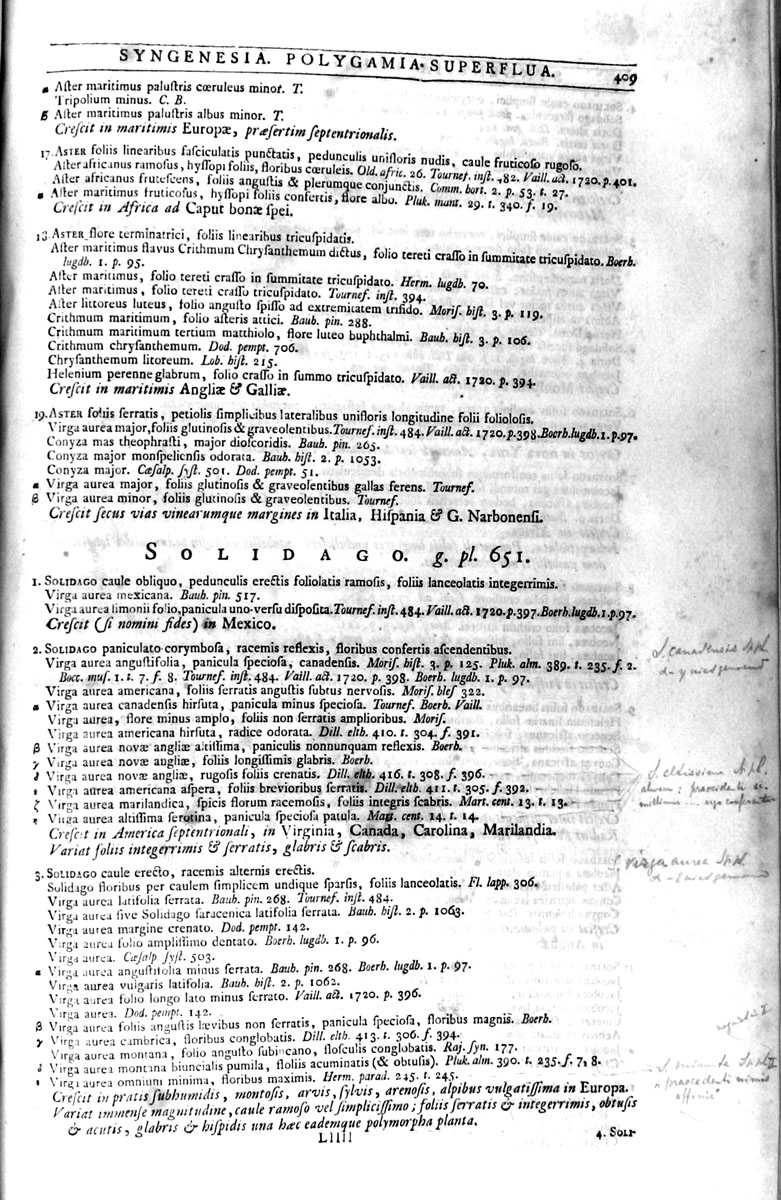 SYNGENESIA. POLYGAMIA SUPERFLUA. 409
α Aſter maritimus paluſtris cœruleus minor. T.
Tripolium minus. C. B.
β Aſter maritimus paluſtris albus minor. T.
Creſcit in maritimis Europæ, præſertim ſeptentrionalis.
17. ASTER foliis linearibus faſciculatis punctatis, pedunculis unifloris nudis, caule fruticoſo rugoſo.
Aſter africanus ramoſus, hyſſopi foliis, floribus cœruleis. Old. afric. 26. Tournef. inſt. 482. Vaill. act. 1720. p. 401.
Aſter africanus fruteſcens, foliis anguſtis & plerumque conjunctis. Comm. hort. 2. p. 53. t. 27.
α Aſter maritimus fruticoſus, hyſſopi foliis confertis, flore albo. Pluk. mant. 29. t. 340. f. 19.
Creſcit in Africa ad Caput bonæ ſpei.
18. ASTER flore terminatrici, foliis linearibus tricuſpidatis.
Aſter maritimus flavus Crithmum Chryſanthemum dictus, folio tereti craſſo in ſummitate tricuſpidato. Boerh.
lugdb. 1. p. 95.
Aſter maritimus, folio tereti craſſo in ſummitate tricuſpidato. Herm. lugdb. 70.
Aſter maritimus, folio tereti craſſo tricuſpidato. Tournef. inſt. 394.
Aſter littoreus luteus, folio anguſto ſpiſſo ad extremitatem trifido. Moriſ. hiſt. 3. p. 119.
Crithmum maritimum, folio aſteris attici. Bauh. pin. 288.
Crithmum maritimum tertium matthiolo, flore luteo buphthalmi. Bauh. hiſt. 3. p. 106.
Crithmum chryſanthemum. Dod. pempt. 706.
Chryſanthemum litoreum. Lob. hiſt. 215.
Helenium perenne glabrum, folio craſſo in ſummo tricuſpidato. Vaill. act. 1720. p. 394.
Creſcit in maritimis Angliæ & Galliæ.
19. ASTER foliis ſerratis, petiolis ſimplicibus lateralibus unifloris longitudine folii folioloſis.
Virga aurea major, foliis glutinoſis & graveolentibus. Tournef. inſt. 484. Vaill. act. 1720. p. 398. Boerh. lugdb. 1. p. 97.
Conyza mas theophraſti, major dioſcoridis. Bauh. pin. 265.
Conyza major monſpelienſis odorata. Bauh. hiſt. 2. p. 1053.
Conyza major. Cæſalp. ſyſt. 501. Dod. pempt. 51.
α Virga aurea major, foliis glutinoſis & graveolentibus gallas ferens. Tournef.
β Virga aurea minor, foliis glutinoſis & graveolentibus. Tournef.
Creſcit ſecus vias vinearumque margines in Italia, Hiſpania & G. Narbonenſi.
SOLIDAGO. g. pl. 651.
1. SOLIDAGO caule obliquo, pedunculis erectis foliolatis ramoſis, foliis lanceolatis integerrimis.
Virga aurea mexicana. Bauh. pin. 517.
Virga aurea limonii folio, panicula uno-verſu diſpoſita. Tournef. inſt. 484. Vaill. act. 1720. p. 397. Boerh. lugdb. 1. p. 97.
Creſcit (ſi nomini fides) in Mexico.
2. SOLIDAGO paniculato corymboſa, racemis reflexis, floribus confertis aſcendentibus.
Virga aurea anguſtifolia, panicula ſpecioſa, canadenſis. Moriſ. hiſt. 3. p. 125. Pluk. alm. 389. t. 235. f. 2.
Bocc. muſ. 1. t. 7. f. 8. Tournef. inſt. 484. Vaill. act. 1720. p. 398. Boerh. lugdb. 1. p. 97.
Virga aurea americana, foliis ſerratis anguſtis ſubtus nervoſis. Moriſ. bleſ 322.
α Virga aurea canadenſis hirſuta, panicula minus ſpecioſa. Tournef. Boerh. Vaill.
Virga aurea, flore minus amplo, foliis non ſerratis amplioribus. Moriſ.
Virga aurea americana hirſuta, radice odorata. Dill. elth. 410. t. 304. f. 391.
β Virga aurea novæ angliæ altiſſima, paniculis nonnunquam reflexis. Boerh.
γ Virga aurea novæ angliæ, foliis longiſſimis glabris. Boerh.
δ Virga aurea novæ angliæ, rugoſis foliis crenatis. Dill. elth. 416. t. 308. f. 396.
ε Virga aurea americana aſpera, foliis brevioribus ſerratis. Dill. elth. 411. t. 305. f. 392.
ζ Virga aurea marilandica, ſpicis florum racemoſis, foliis integris ſcabris. Mart. cent. 13. t. 13.
η Virga aurea altiſſima ſerotina, panicula ſpecioſa patula. Mart. cent. 14. t. 14.
Creſcit in America ſeptentrionali, in Virginia, Canada, Carolina, Marilandia.
Variat foliis integerrimis & ſerratis, glabris & ſcabris.
3. SOLIDAGO caule erecto, racemis alternis erectis.
Solidago floribus per caulem ſimplicem undique ſparſis, foliis lanceolatis. Fl. lapp. 306.
Virga aurea latifolia ſerrata. Bauh. pin. 268. Tournef. inſt. 484.
Virga aurea ſive Solidago ſaracenica latifolia ſerrata. Bauh. hiſt. 2. p. 1063.
Virga aurea margine crenato. Dod. pempt. 142.
Virga aurea folio ampliſſimo dentato. Boerh. lugdb. 1. p. 96.
Virga aurea. Cæſalp ſyſt. 503.
α Virga aurea anguſtifolia minus ſerrata. Bauh. pin. 268. Boerh. lugdb. 1. p. 97.
Virga aurea vulgaris latifolia. Bauh. hiſt. 2. p. 1062.
Virga aurea folio longo lato minus ſerrato. Vaill. act. 1720. p. 396.
Virga aurea. Dod. pempt. 142.
β Virga aurea foliis anguſtis lævibus non ſerratis, panicula ſpecioſa, floribus magnis. Boerh.
γ Virga aurea cambrica, floribus conglobatis. Dill. elth. 413. t. 306. f. 394.
Virga aurea montana, folio anguſto ſubincano, floſculis conglobatis. Raj. ſyn. 177.
δ Virga aurea montana biuncialis pumila, foliis acuminatis (& obtuſis). Pluk. alm. 390. t. 235. f. 7, 8.
ε Virga aurea omnium minima, floribus maximis. Herm. parad. 245. t. 245.
Creſcit in pratis ſubhumidis, montoſis, arvis, ſylvis, arenoſis, alpibus vulgatiſſima in Europa.
Variat immenſe magnitudine, caule ramoſo vel ſimpliciſſimo; foliis ſerratis & integerrimis, obtuſis
& acutis, glabris & hiſpidis una hæc eademque polymorpha planta.
Lllll
4. SOLI-
S. canadensis
S. altissima
S. virga aurea
S. minuta
"praecedenti nimis
affinis"